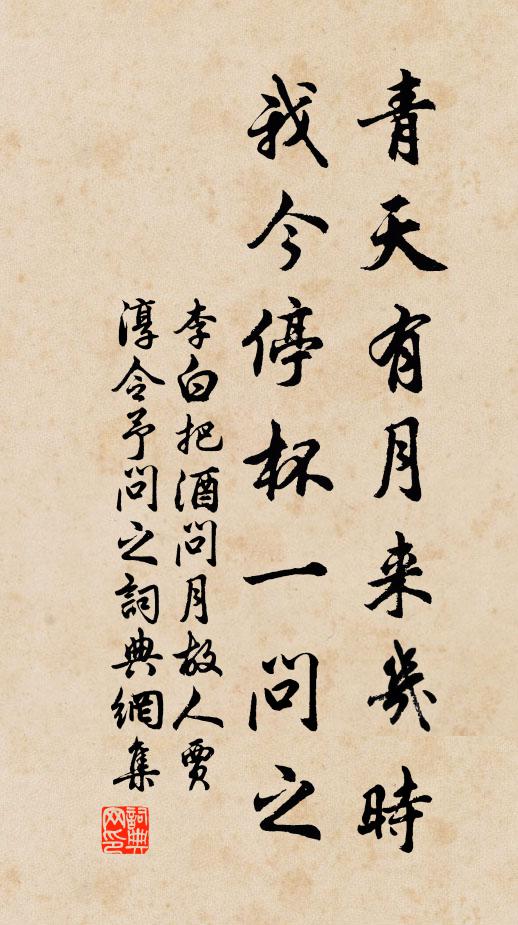 青天有月来幾時
我今停杯一問之
李白把酒問月故人賈
淳令予問之詞典網集
詞典网印